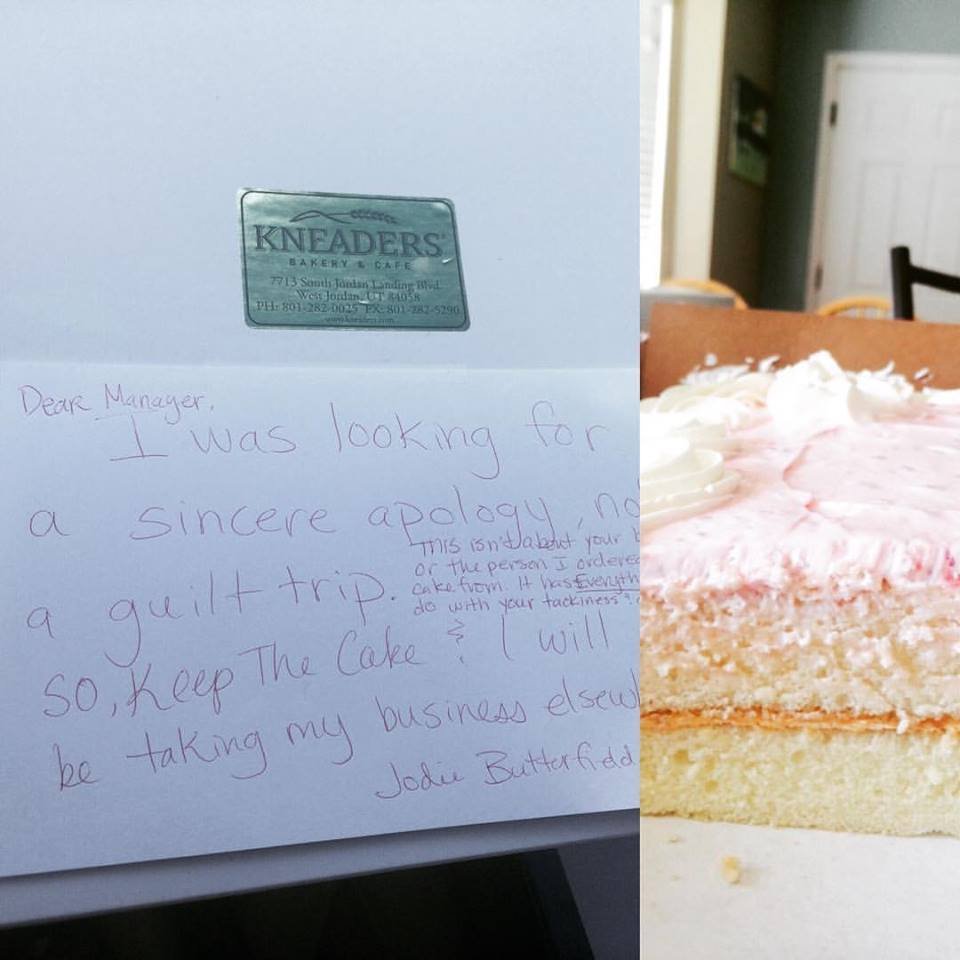 KNEADERS
BAKERY & CAFE
7713 South Jordan Landing Blvd.
West Jordan, UT 84058
PH: 801-282-0025 FX: 801-282-5290
www.kneaders.com
Dear Manager,
I was looking for
a sincere apology,
a guilt trip.
This isn't about your
or the person I ordered
cake from. It has
do with your tackiness
So, Keep The Cake & I will
be taking my business
Jodie Butterfield